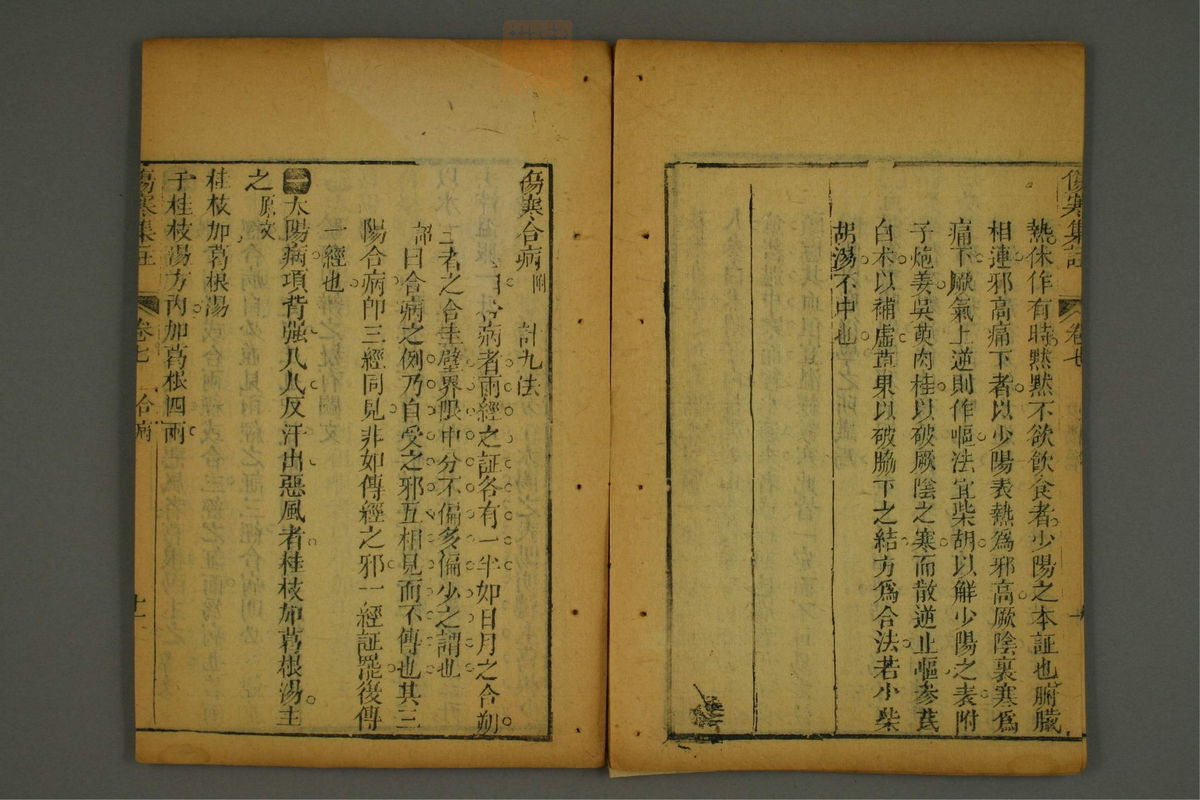 傷寒集註
卷七
熱休作有時黙黙不欲飲食者少陽之本証也腑臟
相連邪高痛下者以少陽表熱爲邪高厥陰裏寒爲
痛下厥氣上逆則作嘔法宜柴胡以解少陽之表附
子炮姜吳萸肉桂以破厥陰之寒而散逆止嘔參茋
白术以補虛草果以破脇下之結方爲合法若小柴
胡湯不中也
傷寒合病附 計九法
合病者兩經之証各有一半如日月之合朔
王者之合圭璧界限中分不偏多偏少之謂也
曰合病之例乃自受之邪互相見而不傳也其三
陽合病卽三經同見非如傳經之邪一經証罷後傳
一經也
一太陽病項背強几几反汗出惡風者桂枝加葛根湯主
之原文
桂枝加葛根湯
于桂枝湯方內加葛根四兩
傷寒集註
卷七 合病
十一